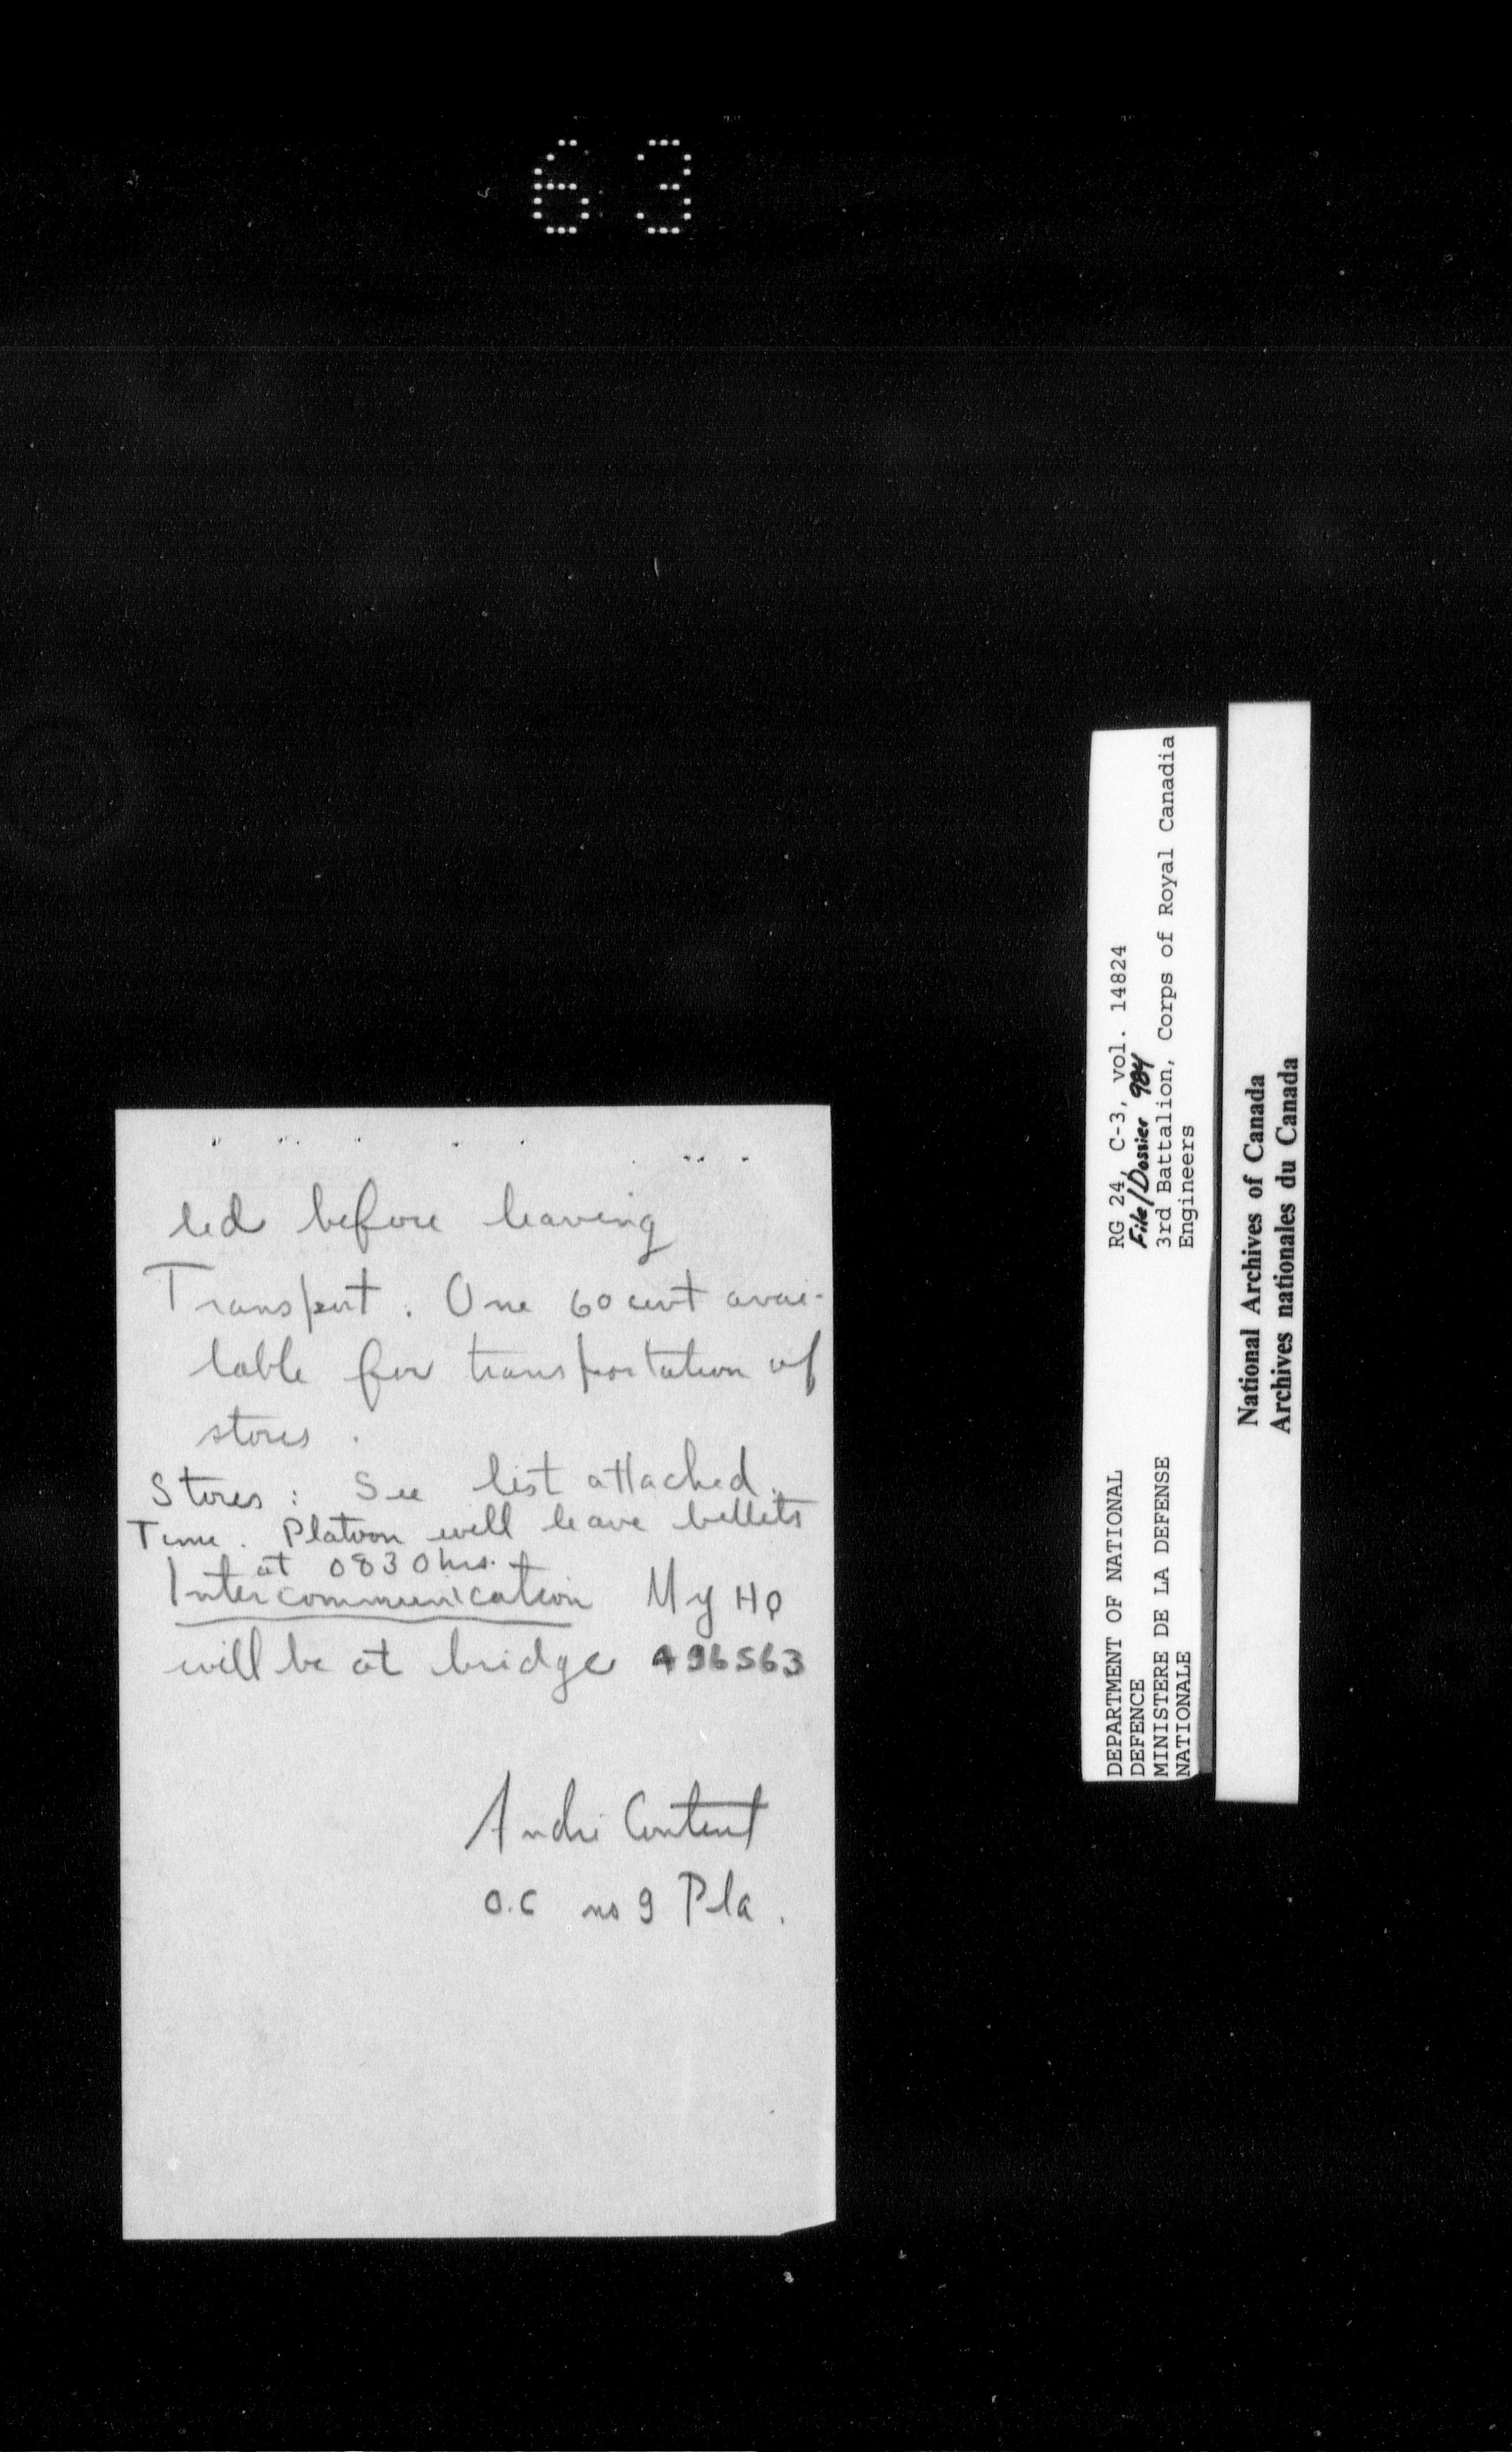 63
led before leaving
Transport. One 60 cwt avai-
lable for transportation of
stores.
Stores: See list attached.
Time. Platoon will leave billets
at 0830 hrs.
Intercommunication My HQ
will be at bridge 496563
André Content
O.C no 9 Pla.
RG 24, C-3, vol. 14824
File/Dossier 984
3rd Battalion, Corps of Royal Canadia
Engineers
DEPARTMENT OF NATIONAL
DEFENCE
MINISTERE DE LA DEFENSE
NATIONALE
National Archives of Canada
Archives nationales du Canada